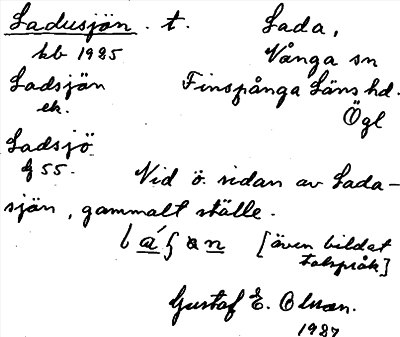 Ladusjön . t. Lada,
kb 1925 Vånga sn
Ladsjön Finspånga Läns hd.
ek. Ögl
Ladsjö
G 55.
Vid ö. sidan av Lada-
sjön, gammalt ställe.
[även bildat
talspråk]
Gustaf E. Olsson.
1927